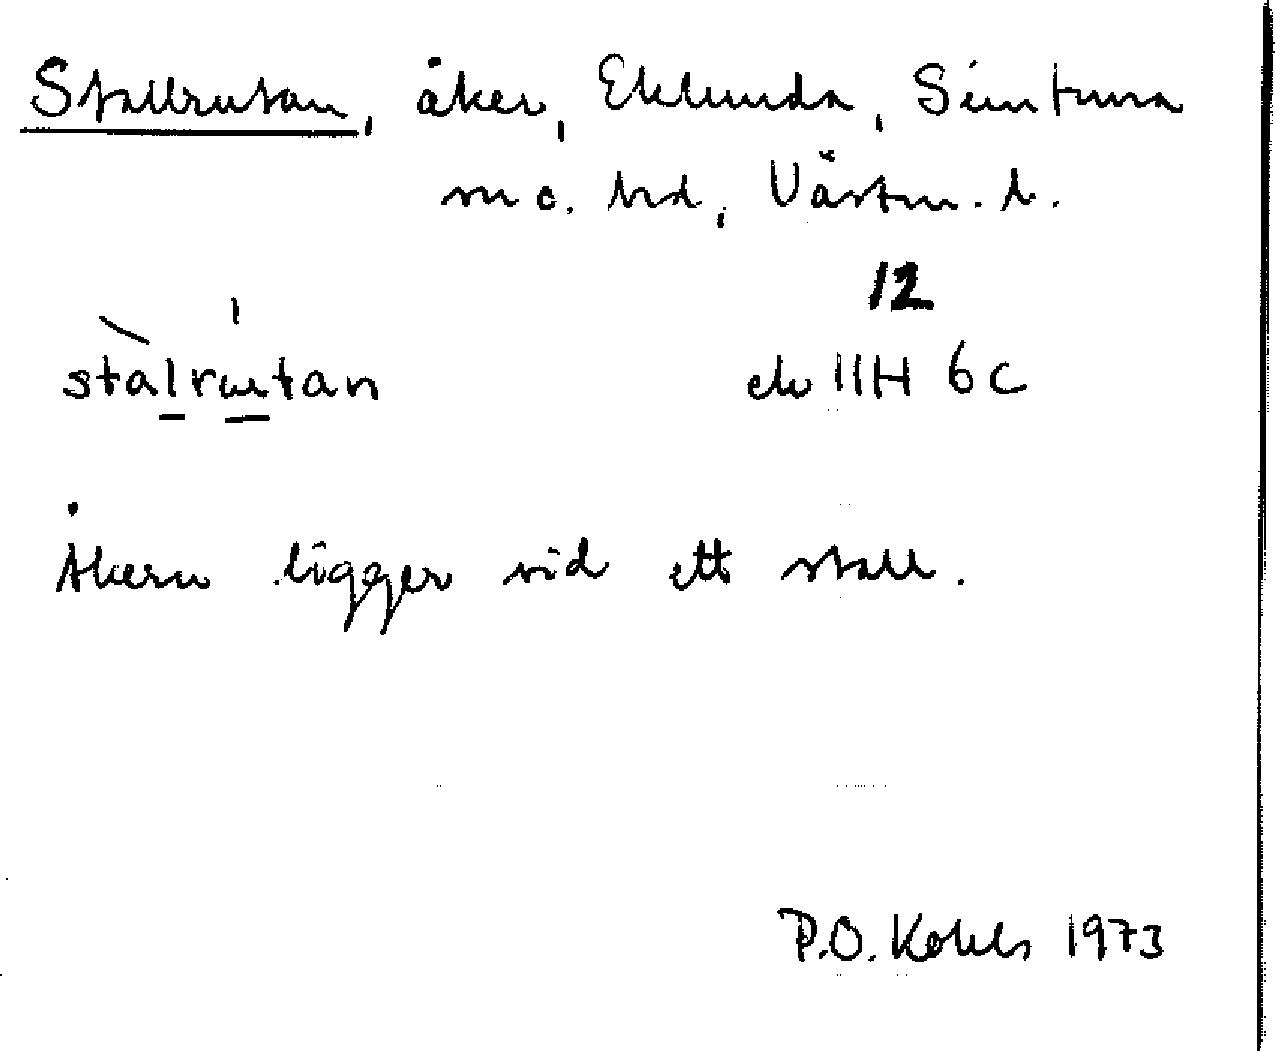 Stallrutan, åker, Eklunda, Simtuna
sn o. hd, Västm. l.
12
stalrutan ek 11H 6c
Åkern ligger vid ett stall.
P.O. Kohls 1973